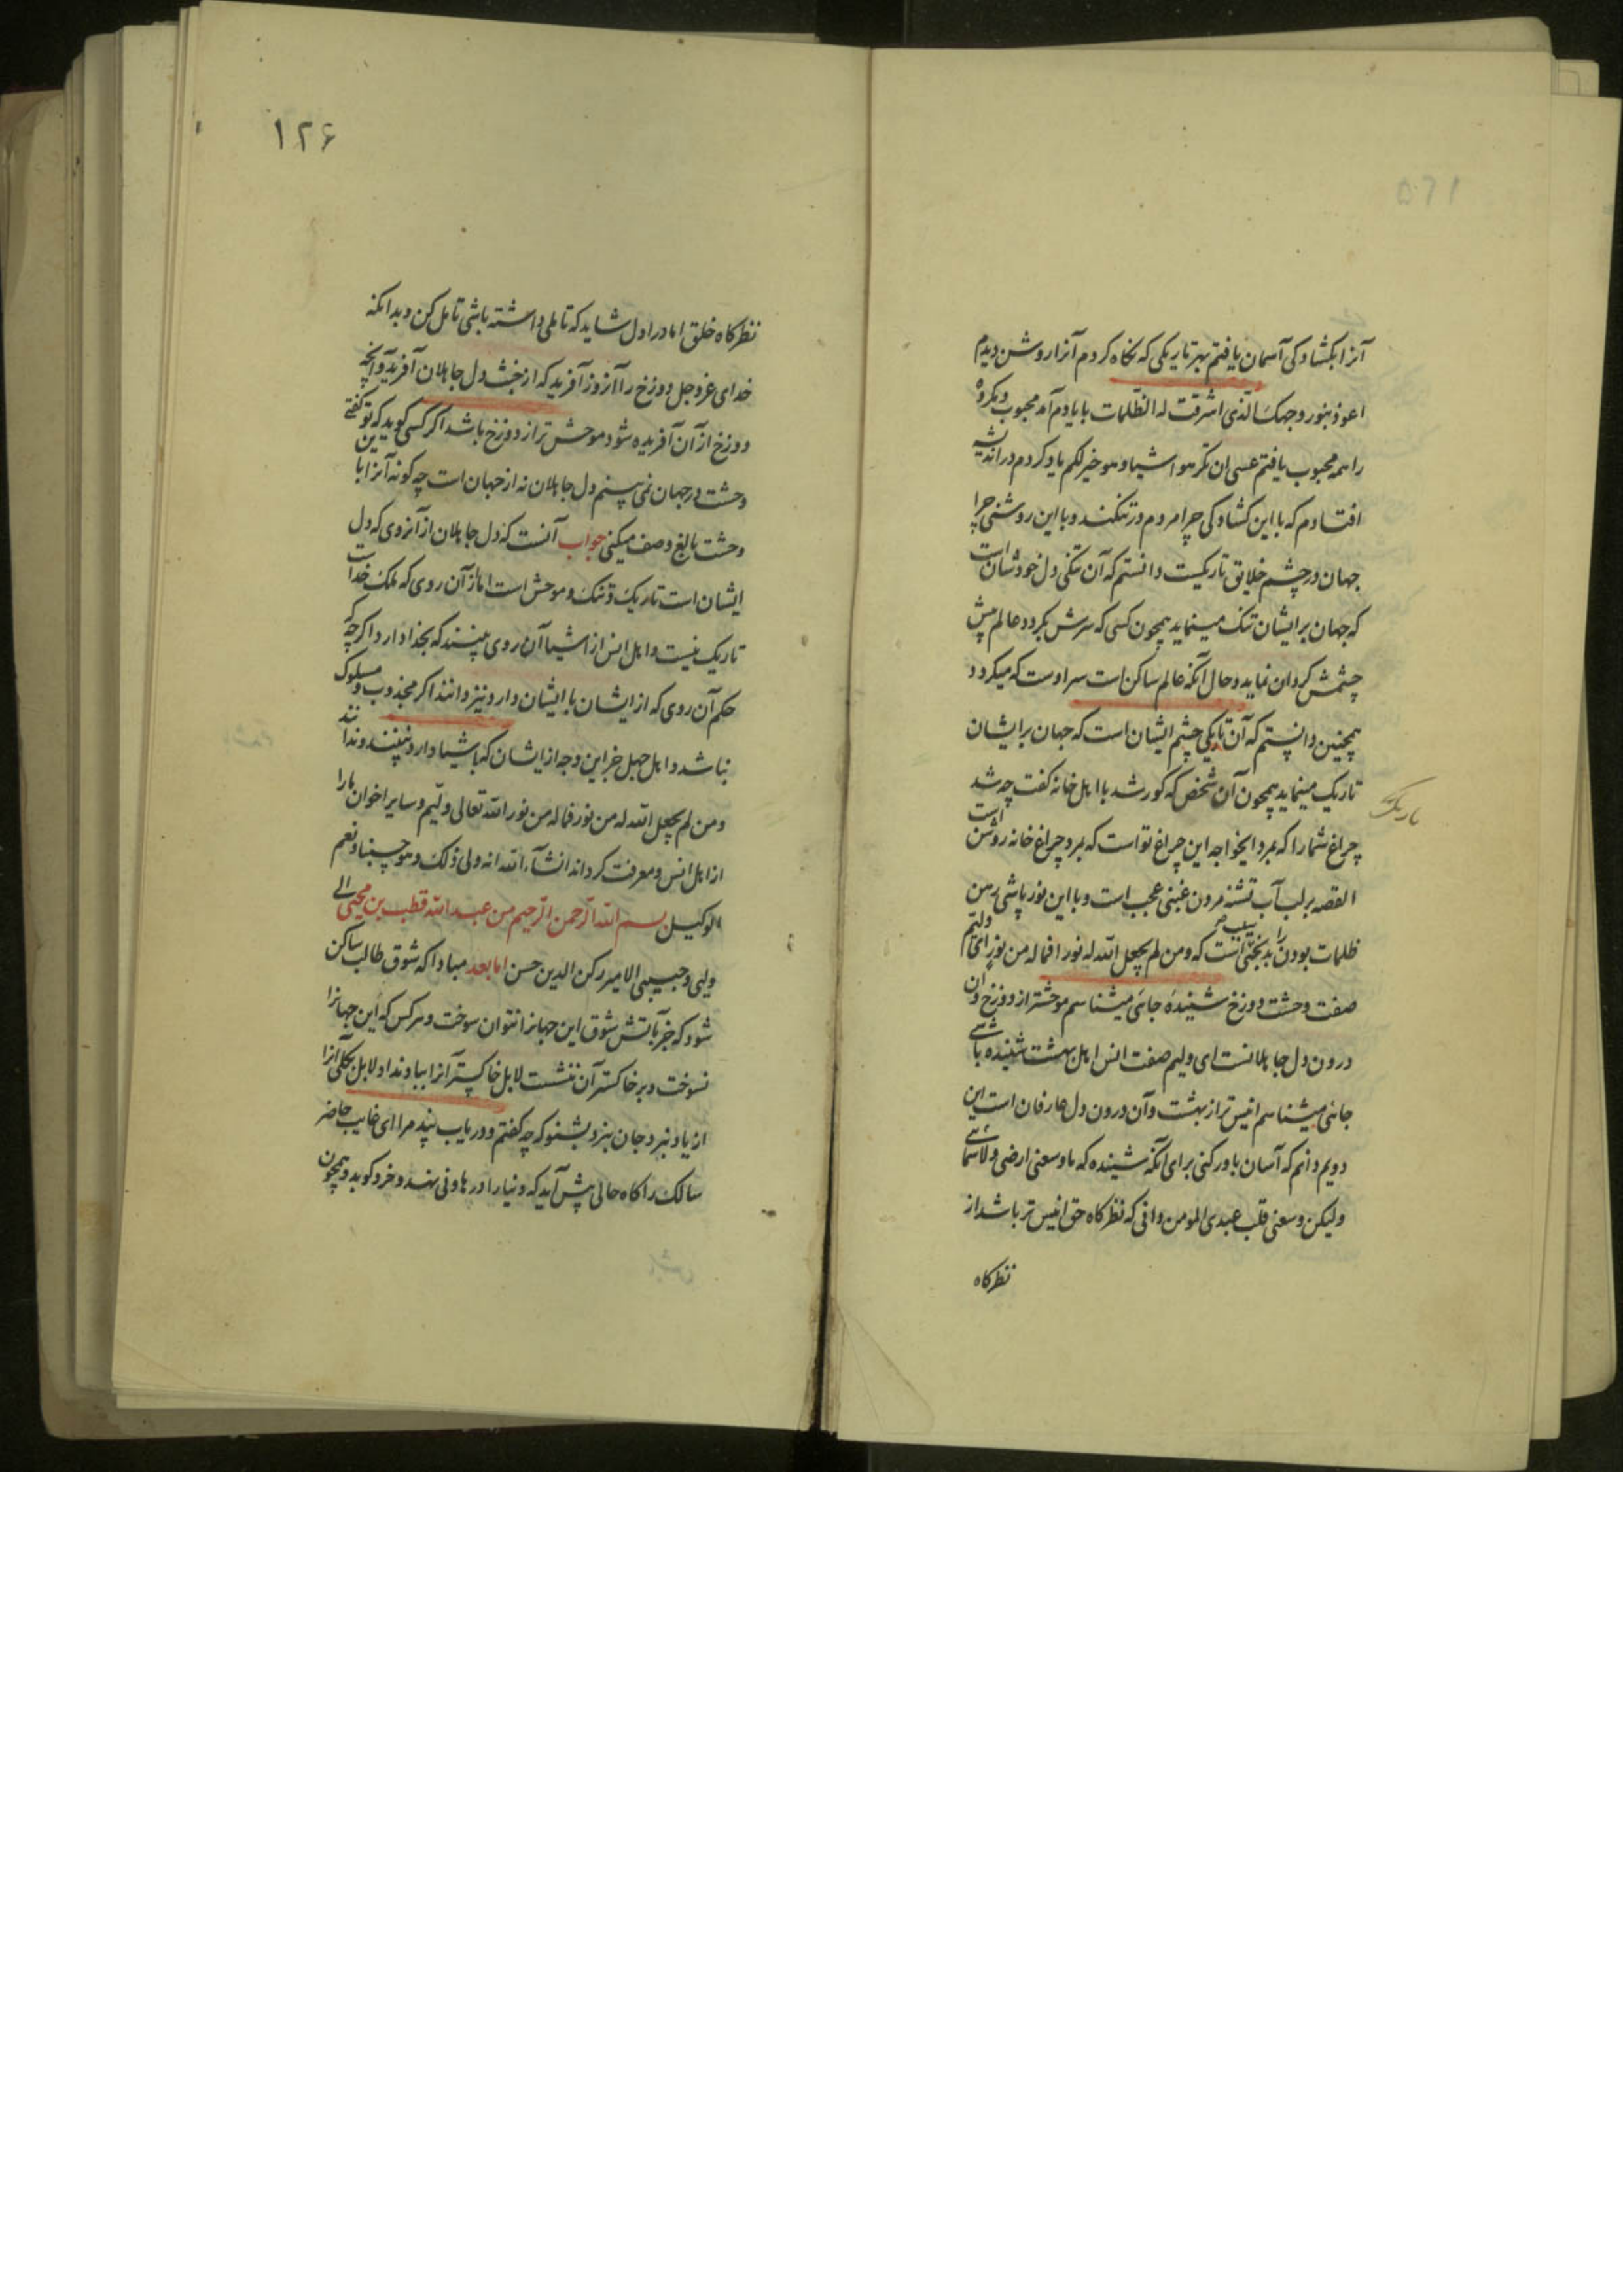 آنرا بکشادکی آسمان یافتم بهر تاریکی که نکاه کردم آنرا روشن دیدم
اعوذ بنور وجهک الذی اشرقت له الظلمات با یادم آمد محبوب و مکروه
را همه محبوب یافتم عسی ان تکرهوا شیا و هو خیر لکم یاد کردم در اندیشه
افتادم که با این کشادکی چرا مردم در تنکند و با این روشنی چرا
جهان در چشم خلایق تاریکیست دانستم که آن تنکی دل خودشان است
که جهان بر ایشان تنک مینماید همچون کسی که سرش بکردد عالم پیش
چشمش کردان نماید و حال آنکه عالم ساکن است سر اوست که میکردد
همچنین دانستم که آن تاریکی چشم ایشان است که جهان بر ایشان
تاریک مینماید همچون آن شخص که کور شد با اهل خانه کفت چه شد
چراغ شما را که بمرد ایخواجه این چراغ تو است که بمرد چراغ خانه روشن است
القصه بر لب آب تشنه مردن غبنی عجب است و با این نور پاشی رهن
ظلمات بودن را بدبختی است که و من لم یجعل الله له نورا فما له من نور ای ولیم
صفت وحشت دوزخ شنیدهٔ جائی میشناسم موحشتر از دوزخ و آن
درون دل جاهلانست ای ولیم صفت انس اهل بهشت شنیده باشی
جائی میشناسم انیس تر از بهشت و آن درون دل عارفان است این
دویم دانم که آسان باور کنی برای آنکه شنیده که ما وسعنی ارضی ولا سمائی
ولیکن وسعنی قلب عبدی المومن دانی که نظرکاه حق انیس تر باشد از
نظرکاه
۱۲۶
نظرکاه خلق اما در اول شاید که تاملی داشته باشی تامل کن و بدانکه
خدای عزوجل دوزخ را آنروز آفرید که از خبث دل جاهلان آفرید و آنچه
دوزخ از آن آفریده شود موحش تر از دوزخ باشد اکر کسی کوید که تو کفتی
وحشت در جهان نمی بینم دل جاهلان نه از جهان است چه کونه آنرا با
وحشت بالغ وصف میکنی جواب آنست که دل جاهلان از آنروی که دل
ایشان است تاریک و تنک و موحش است اما از آن روی که ملک خداست
تاریک نیست و اهل انس از اشیا آن روی بینند که بخدا دارد اکر چه
حکم آن روی که از ایشان با ایشان دارد نیز دانند اکر مجذوب و مسلوک
نباشد و اهل جهل خر این وجه از ایشان که باشیا دارد نبینند و ندانند
و من لم یجعل الله له من نور فما له من نور الله تعالی ولیم و سایر اخوان مارا
از اهل انس و معرفت کرداند انشآء الله انه ولی ذلک و هو حسبنا و نعم
الوکیل بسم الله الرحمن الرحیم من عبد الله قطب بن محیی الی
ولیی و حبیبی الامیر رکن الدین حسن اما بعد مبادا که شوق طالب ساکن
شود که جز بآتش شوق این جهانرا نتوان سوخت و هر کس که این جهانرا
نسوخت و بر خاکستر آن ننشست لا بل خاکستر آنرا بباد نداد لا بل بکلی آنرا
از یاد نبرد جان نبرد بشنو که چه کفتم و دریاب پند مرا ای غایب حاضر
سالک را کاه حالی پیش آید که دنیا را در هاونی نهد و خرد کوبد و همچون